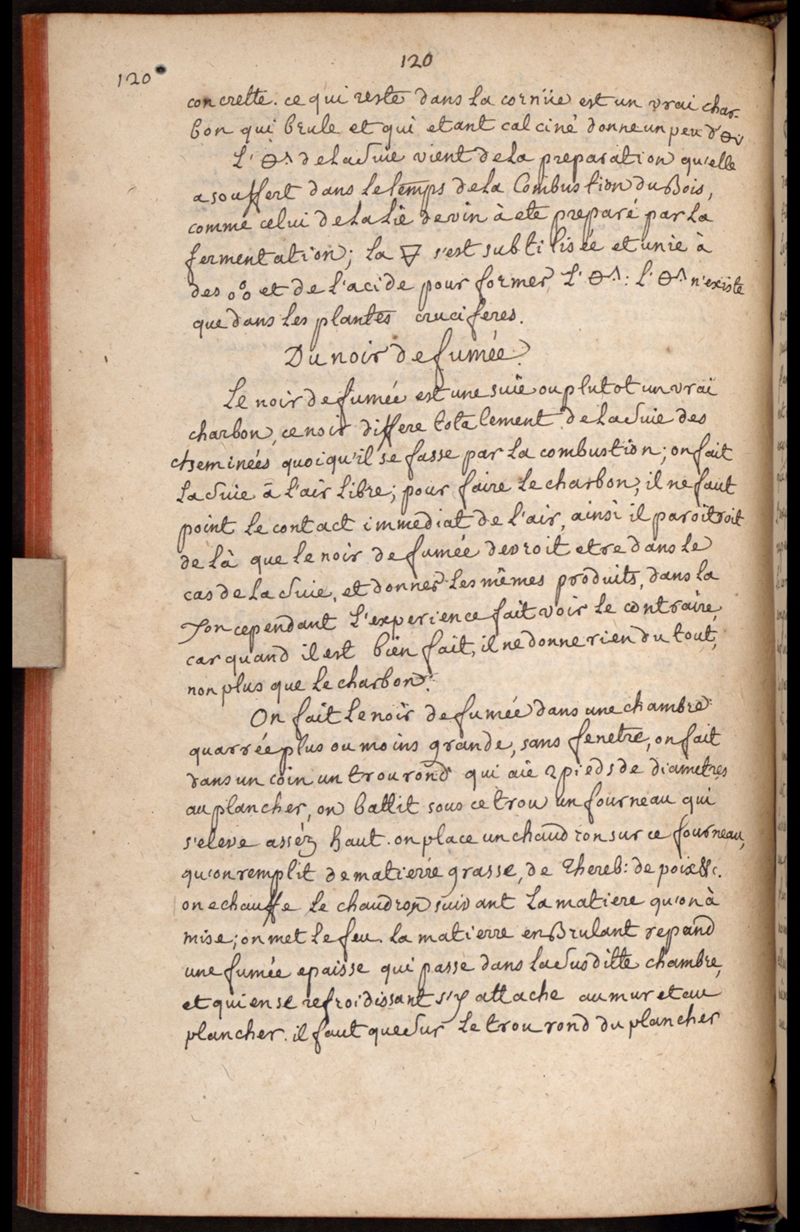 120
120
concrette. ce qui reste dans la cornüe est un vrai char-
bon qui brule et qui etant calciné donne un peu d'🜘v
L'🜘^ de la Suie vient de la preparation qu'elle
a souffert dans le temps de la Combustion du Bois,
comme celui de la lie de vin à eté preparé par la
fermentation; la 🜃 s'est subtilisée et unie à
des o°o et de l'acide pour former L'🜘^: l'🜘^ n'existe
que dans les plantes cruciferes.
Du noir de fumée.
Le noir de fumée est une suie ou plutot un vrai
charbon, ce noir differe totalement de la Suie des
cheminées quoiqu'il se fasse par la combustion; on fait
la Suie à l'air libre; pour faire le charbon, il ne faut
point le contact immediat de l'air, ainsi il paroitroit
de là que le noir de fumée devroit etre dans le
cas de la Suie, et donner les mêmes produits, dans la
cependant l'experience fait voir le contraire,
car quand il est bien fait, il ne donne rien du tout,
non plus que le charbon.
On fait le noir de fumée dans une chambre
quarrée plus ou moins grande, sans fenetre, on fait
dans un coin un trou rond qui aie 2 pieds de diametres
au plancher, on battit sous ce trou un fourneau qui
s'eleve asséz haut. on place un chaudron sur ce fourneau,
qu'on remplit de matierre grasse, de Thereb: de poix &c.
on echauffe le chaudron suivant la matiere qu'on à
mise; on met le feu. la matierre en Brulant repand
une fumée epaisse qui passe dans la Susditte chambre,
et qui en se refroidissant s'y attache au mur et au
plancher. il faut que Sur le trou rond du plancher